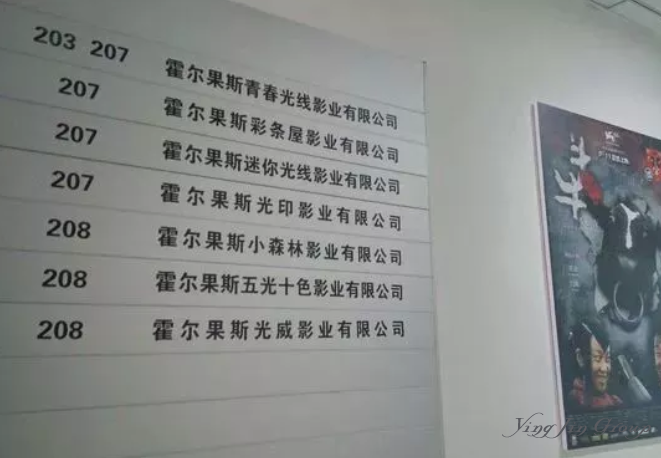 203 207 霍尔果斯青春光线影业有限公司
207 霍尔果斯彩条屋影业有限公司
207 霍尔果斯迷你光线影业有限公司
207 霍尔果斯光印影业有限公司
208 霍尔果斯小森林影业有限公司
208 霍尔果斯五光十色影业有限公司
208 霍尔果斯光威影业有限公司